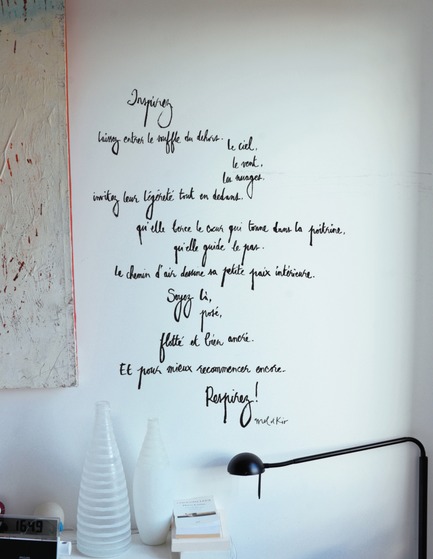 Inspirez
laissez entrer le souffle du dehors.
le ciel,
le vent,
les nuages.
invitez leur légèreté tout en dedans.
qu'elle berce le cœur qui tonne dans la poitrine,
qu'elle guide le pas.
le chemin d'air dessine sa petite paix intérieure.
Soyez là,
posé,
flotté et bien ancré.
Et pour mieux recommencer encore.
Respirez!